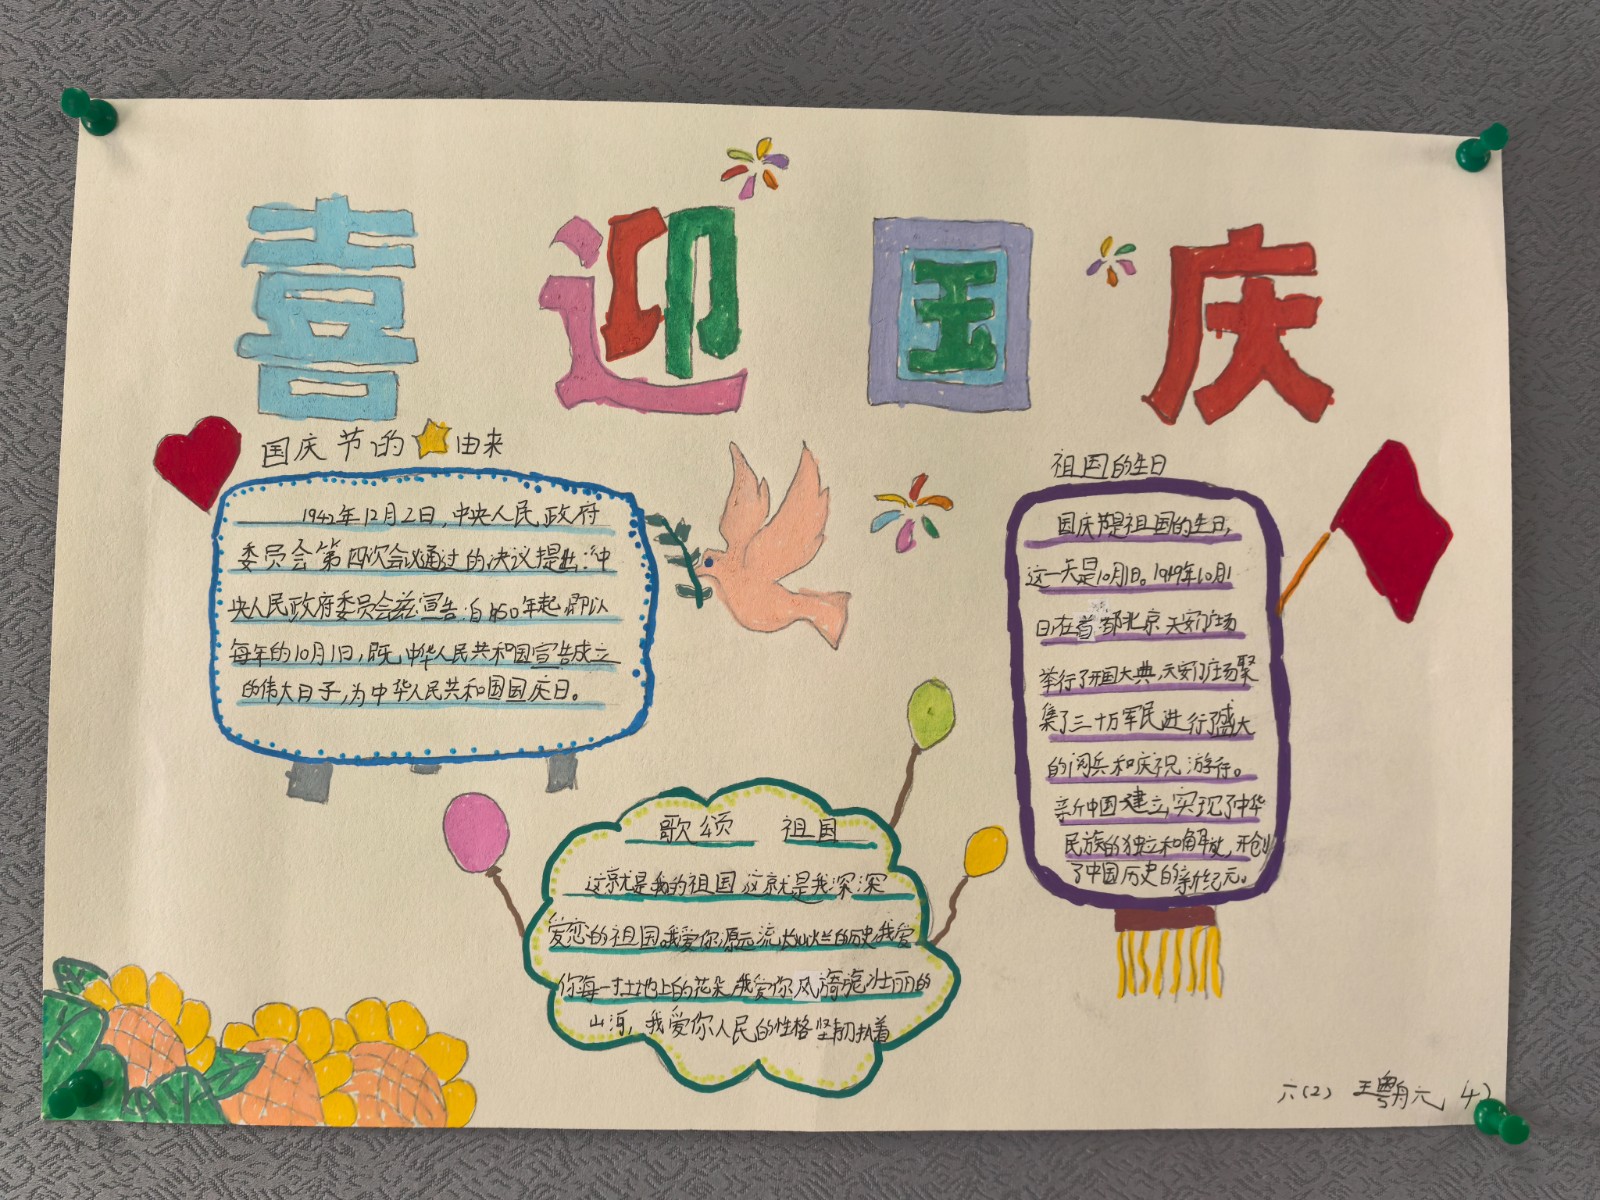 喜迎国庆
国庆节的由来
1942年12月2日,中央人民政府
委员会第四次会议通过的决议提出:中
央人民政府委员会兹宣告:自1950年起,即以
每年的10月1日,即 中华人民共和国宣告成立
的伟大日子,为中华人民共和国国庆日。
祖国的生日
国庆节是祖国的生日,
这一天是10月1日。1949年10月1
日在首都北京天安门广场
举行了开国大典,天安门广场聚
集了三十万军民进行了盛大
的阅兵和庆祝游行。
新中国建立,实现了中华
民族的独立和解放,开创
了中国历史的新纪元。
歌颂 祖国
这就是我的祖国 这就是我深深
爱恋的祖国。我爱你源远流长灿烂的历史,我爱
你每一寸土地上的花朵,我爱你风 旖旎壮丽的
山河,我爱你人民的性格坚韧执着
六(2) 王粤